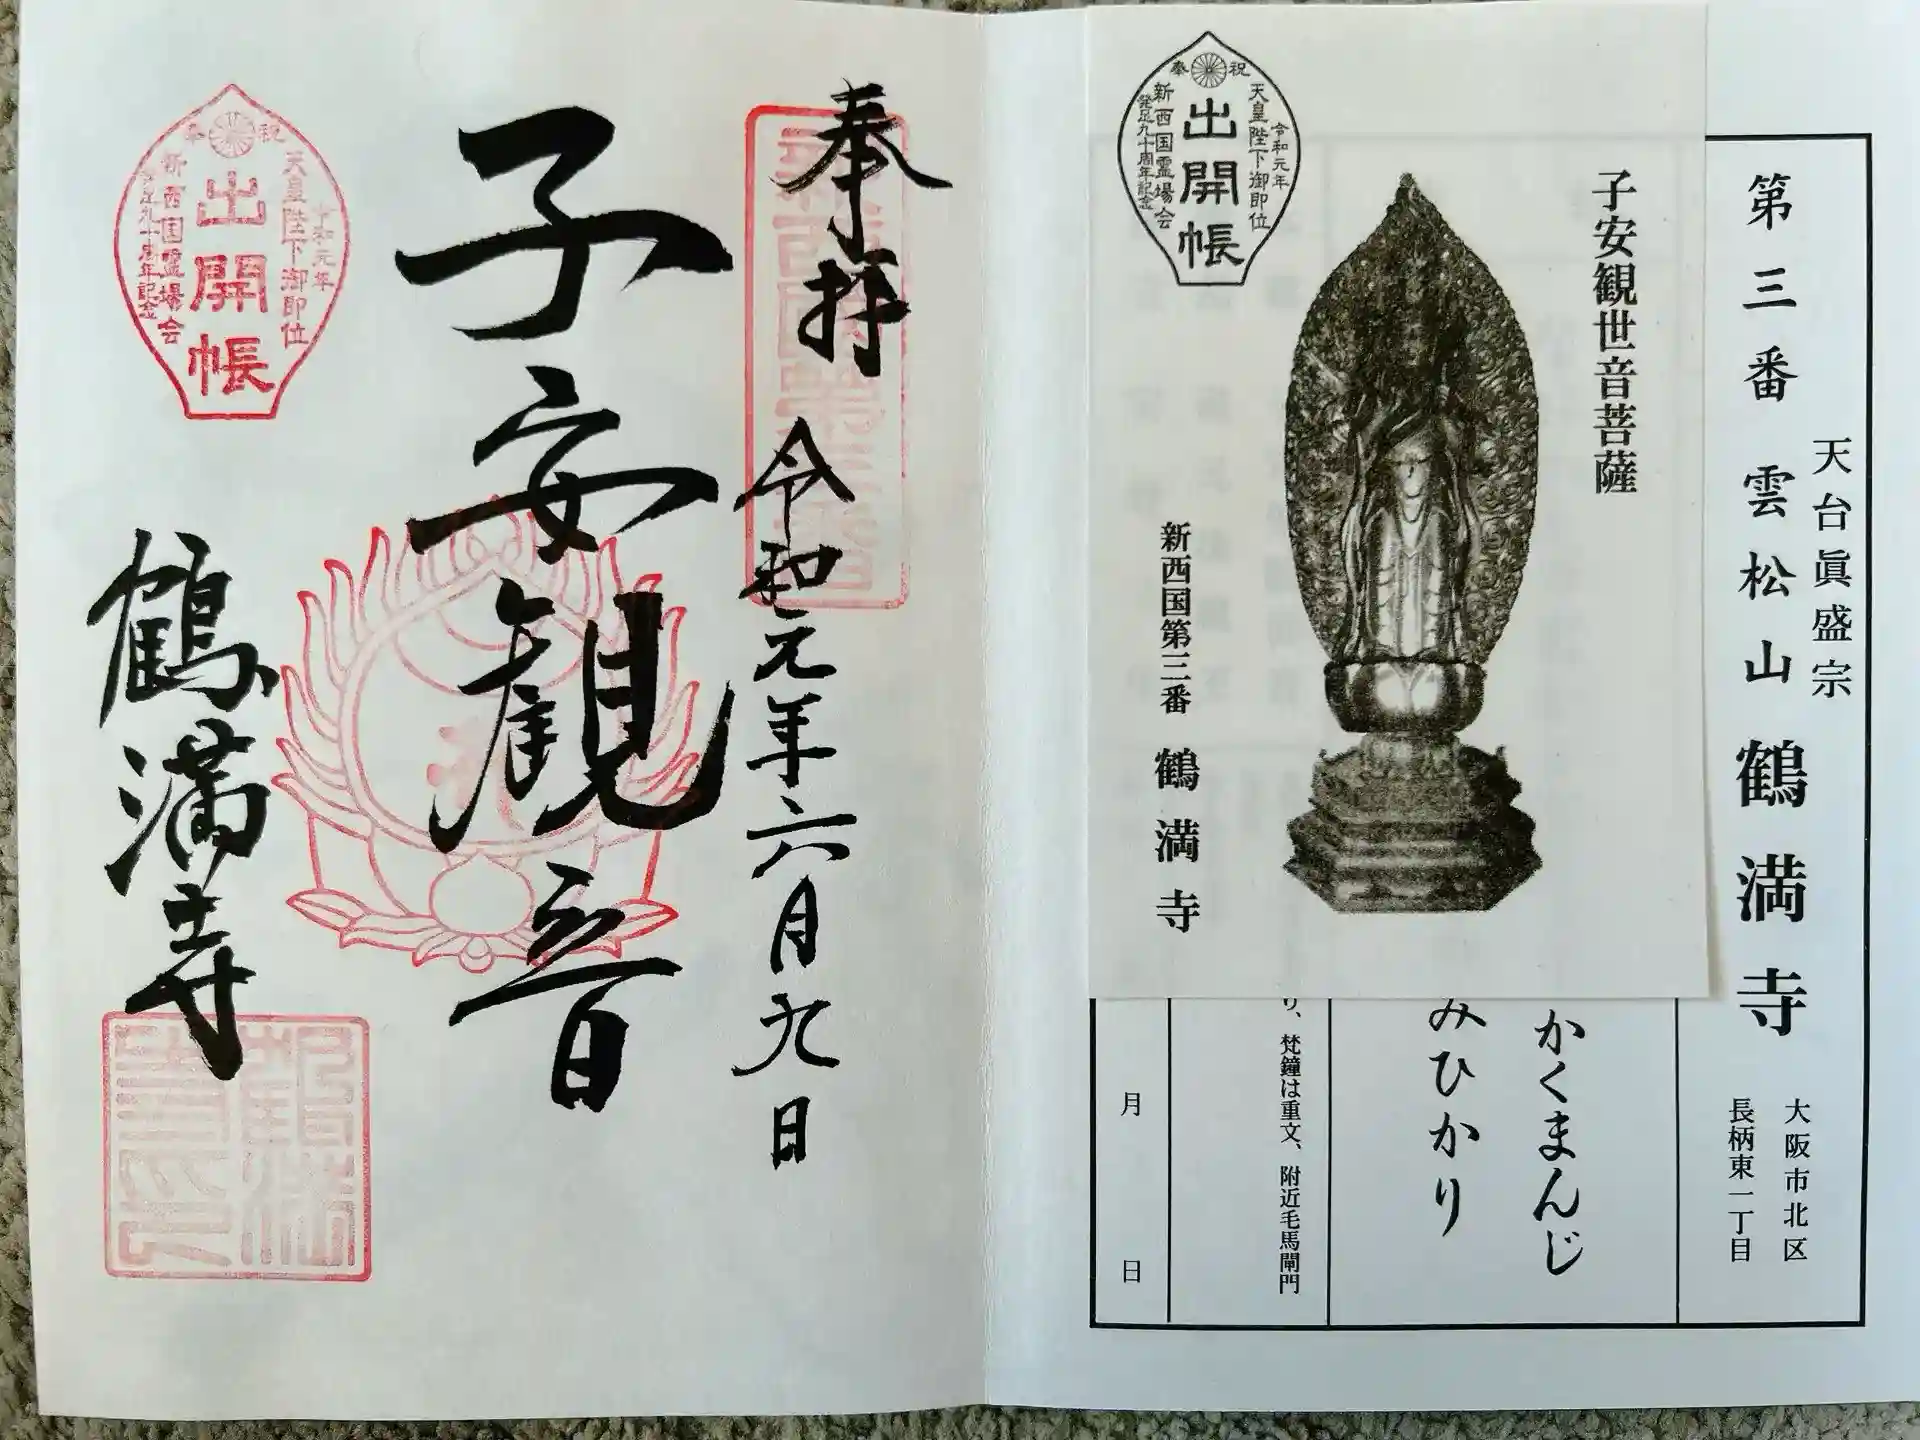 第三番 雲松山 鶴満寺
天台眞盛宗
大阪市北区
長柄東一丁目
子安観世音菩薩
新西国第三番 鶴満寺
奉祝
令和元年
天皇陛下御即位
出開帳
新西国霊場会
発足九十周年記念
かくまんじ
みひかり
り、梵鐘は重文、附近毛馬閘門
月 日
奉拝
令和元年六月九日
新西国第三番
子安観音
鶴満寺
奉祝
令和元年
天皇陛下御即位
出開帳
新西国霊場会
発足九十周年記念
鶴満寺印